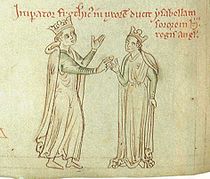 Imp̄ator frethic' in uxorē ducit ysabellam
sororem h̄
regis angl'